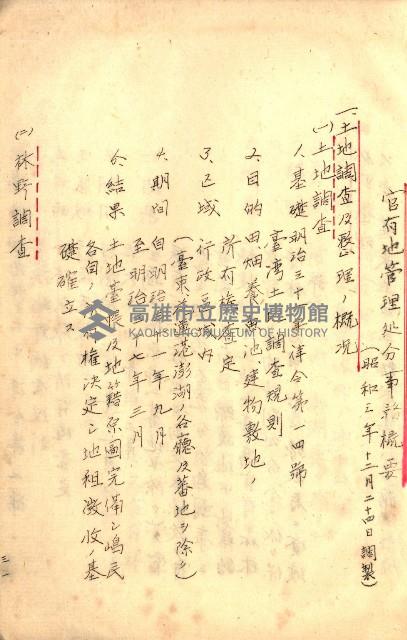 官有地管理処分事務概要
(昭和三年十二月二十四日調製)
一、土地調査及整理ノ概況
(一)土地調査
1、基礎 明治三十一年律令第一四號
臺湾土地調査規則
2、目的 田畑養魚池建物敷地ノ
所有権査定
3、区域 行政区域内
(臺東花蓮港澎湖ノ各廳及蕃地ヲ除ク)
4、期間 自明治三十一年九月
至明治三十七年三月
5、結果 土地臺帳及地籍原圖完備シ嶋民
各自ノ業権決定シ地租徴收ノ基
礎確立ス
(二)林野調査
三一
高雄市立歷史博物館
KAOHSIUNG MUSEUM OF HISTORY